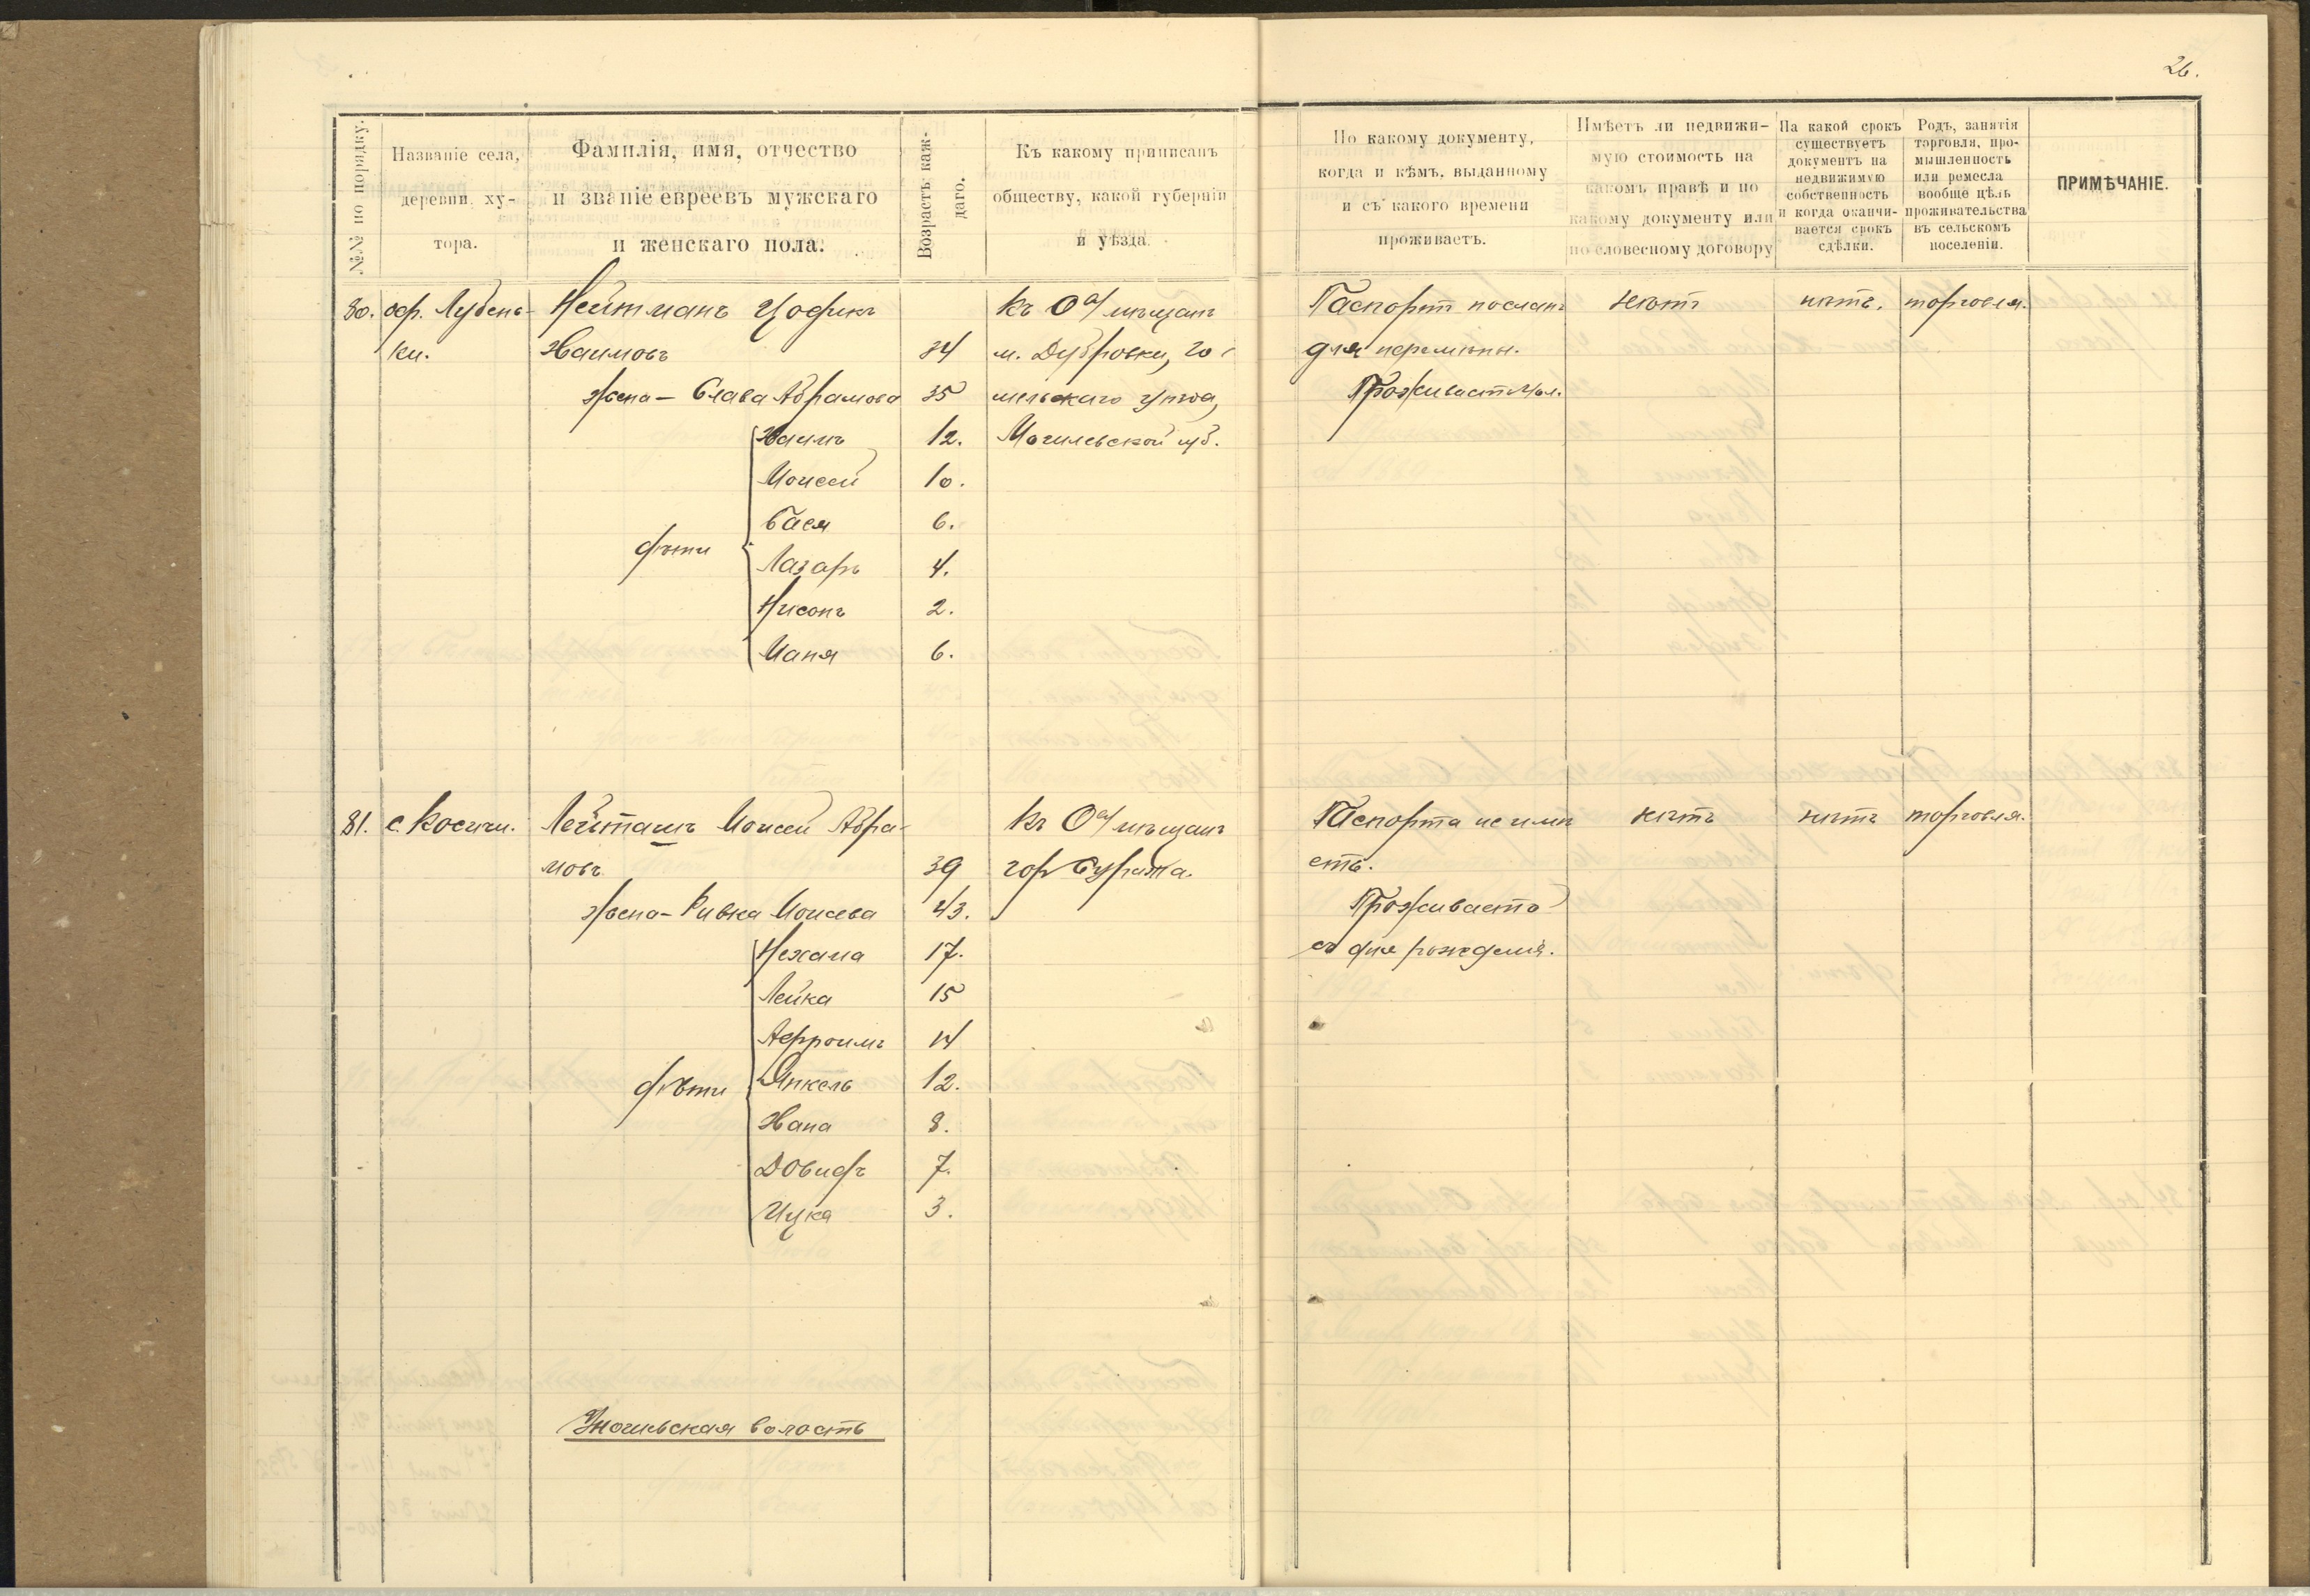 26.
№№ по порядку.
Названіе села,
деревни, ху-
тора.
Фамилія, имя, отчество
и званіе евреевъ мужскаго
и женскаго пола.
Возрастъ каж-
даго.
Къ какому приписанъ
обществу, какой губерніи
и уѣзда.
По какому документу,
когда и кѣмъ, выданному
и съ какого времени
проживаетъ.
Имѣетъ ли недвижи-
мую стоимость на
какомъ правѣ и по
какому документу или
по словесному договору
На какой срокъ
существуетъ
документъ на
недвижимую
собственность
и когда оканчи-
вается срокъ
сдѣлки.
Родъ, занятія
торговля, про-
мышленность
или ремесла
вообще цѣль
проживательства
въ сельскомъ
поселеніи.
ПРИМѢЧАНІЕ.
80. дер. Лубень- Нейтманъ Цодикъ Къ О-ву мѣщанъ Паспортъ посланъ нѣтъ нѣтъ. торговля.
ки. Хаимовъ 34 м. Дубровки, Го- для перемѣны.
жена - Слава Абрамова 35 мельскаго уѣзда, Проживаетъ
Хаимъ 12. Могилевской губ.
Моисей 10.
Бася 6.
дѣти
Лазарь 4.
Нисонъ 2.
Маня 6.
81. с. Косичи. Лейтманъ Моисей Абра- Къ О-ву мѣщанъ Паспорта не имѣ- нѣтъ нѣтъ торговля.
мовъ 39 гор Суража. етъ.
жена - Ривка Моисева 43. Проживаетъ
Нехама 17. съ дня рожденія.
Лейка 15
Афроимъ 14
дѣти Янкель 12.
Хана 8.
Довидъ 7.
Ицка 3.
волость